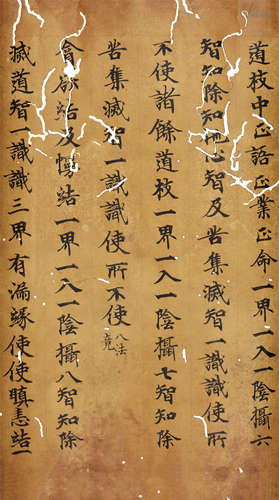 道枝中正語正業正命一界一入一陰攝六
智知除知他心智及苦集滅智一識識使所
不使諸餘道枝一界一入一陰攝七智知除
苦集滅智一識識使所不使八法竟
貪欲結及慢結一界一入一陰攝八智知除
滅道智一識識三界有漏緣使使瞋恚結一